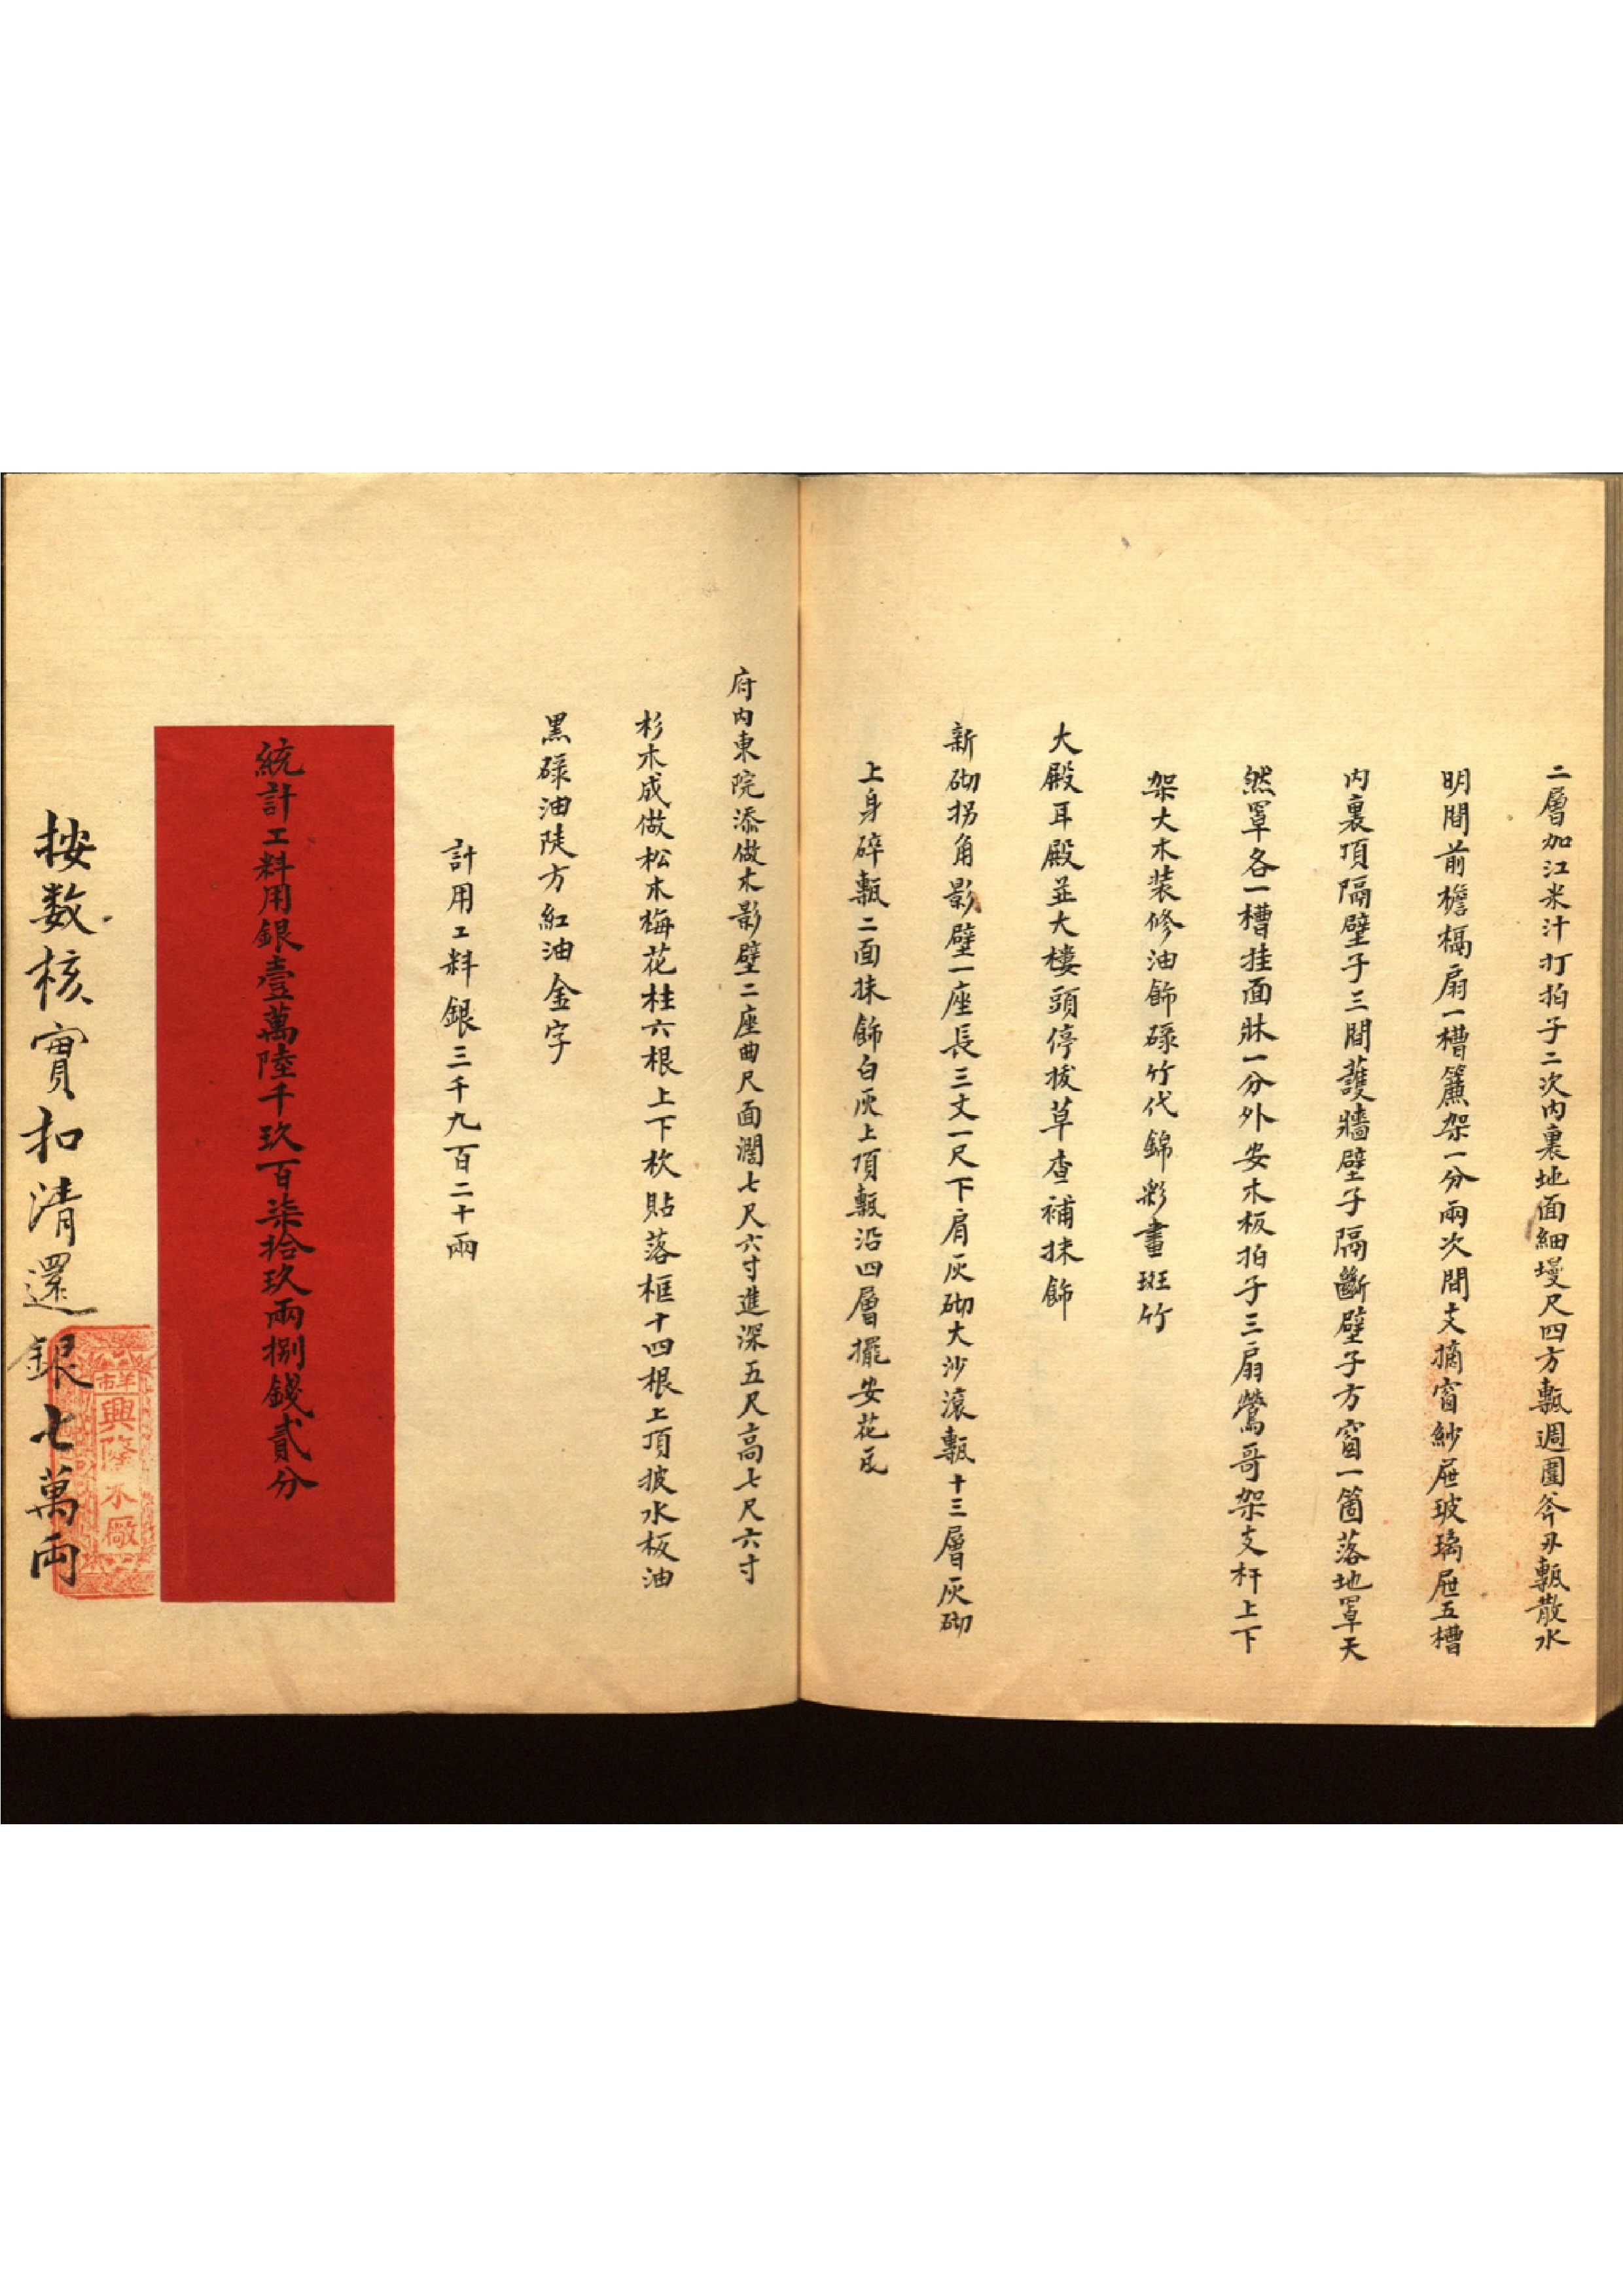 二層加江米汁打拍子二次內裏地面細墁尺四方甎週圍斧刃甎散水
明間前檐槅扇一槽簾架一分兩次間支摘窗紗屉玻璃屉五槽
內裏頂隔壁子三間護牆壁子隔斷壁子方窗一箇落地罩天
然罩各一槽挂面牀一分外安木板拍子三扇鶯哥架支杆上下
架大木装修油飾碌竹代錦彩畫斑竹
大殿耳殿並大樓頭停拔草查補抹飾
新砌拐角影壁一座長三丈一尺下肩灰砌大沙滾甎十三層灰砌
上身碎甎二面抹飾白灰上頂甎沿四層擺安花瓦
府內東院添做木影壁二座曲尺面濶七尺六寸進深五尺高七尺六寸
杉木成做松木梅花柱六根上下枋貼落框十四根上頂披水板油
黑碌油陡方紅油金字
計用工料銀三千九百二十兩
統計工料用銀壹萬陸千玖百柒拾玖兩捌錢貳分
按数核實扣清還銀七萬両
興隆木廠